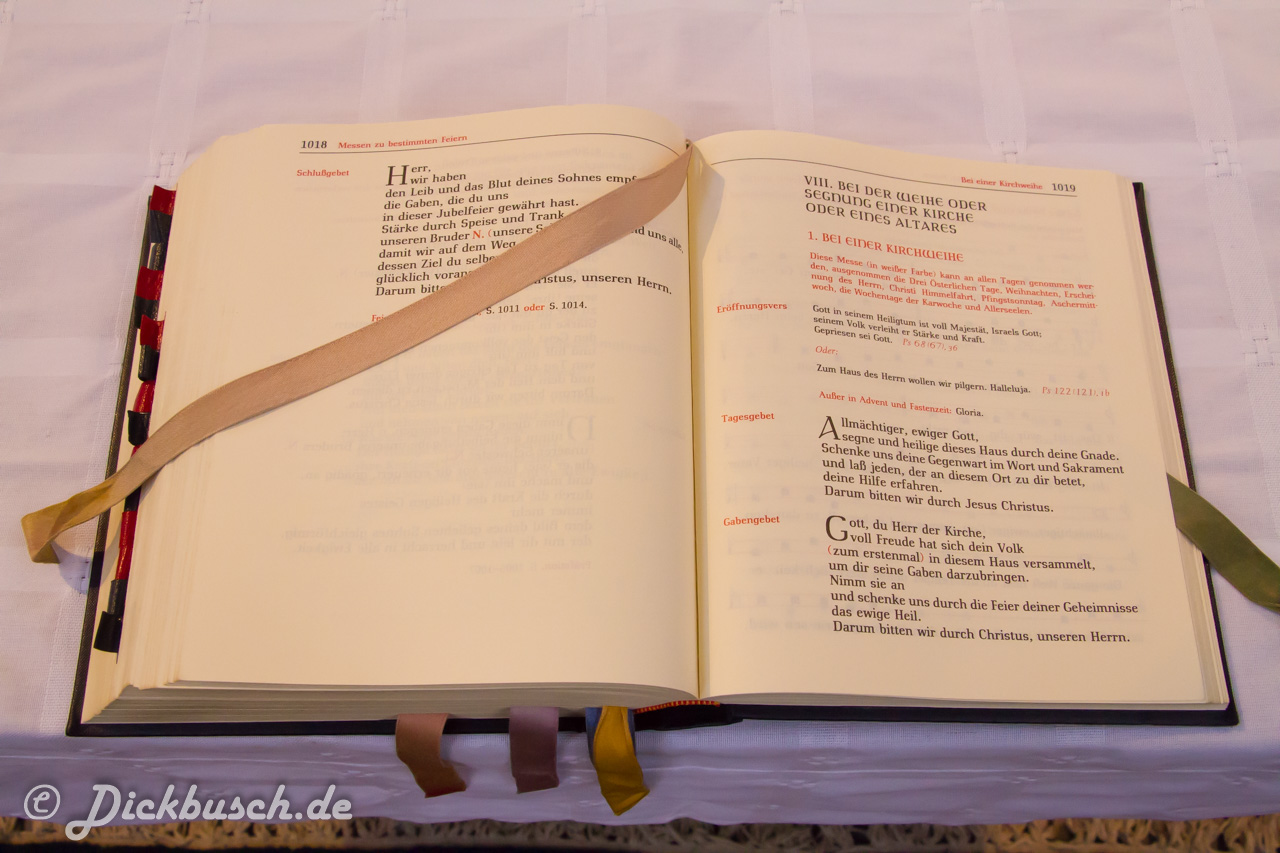 1018 Messen zu bestimmten Feiern
Schlußgebet
Herr,
wir haben
den Leib und das Blut deines Sohnes
die Gaben, die du uns
in dieser Jubelfeier gewährt hast.
Stärke durch Speise und Trank
unseren Bruder N. (unsere und uns alle,
damit wir auf dem Weg
dessen Ziel du
glücklich
Darum Christus, unseren Herrn.
S. 1011 oder S. 1014.
Bei einer Kirchweihe 1019
VIII. BEI DER WEIHE ODER
SEGNUNG EINER KIRCHE
ODER EINES ALTARES
1. BEI EINER KIRCHWEIHE
Diese Messe (in weißer Farbe) kann an allen Tagen genommen wer-
den, ausgenommen die Drei Österlichen Tage, Weihnachten, Erschei-
nung des Herrn, Christi Himmelfahrt, Pfingstsonntag, Aschermitt-
woch, die Wochentage der Karwoche und Allerseelen.
Eröffnungsvers
Gott in seinem Heiligtum ist voll Majestät, Israels Gott;
seinem Volk verleiht er Stärke und Kraft.
Gepriesen sei Gott. Ps 68 (67), 36
Oder:
Zum Haus des Herrn wollen wir pilgern. Halleluja. Ps 122 (121), 1b
Außer in Advent und Fastenzeit: Gloria.
Tagesgebet
Allmächtiger, ewiger Gott,
segne und heilige dieses Haus durch deine Gnade.
Schenke uns deine Gegenwart im Wort und Sakrament
und laß jeden, der an diesem Ort zu dir betet,
deine Hilfe erfahren.
Darum bitten wir durch Jesus Christus.
Gabengebet
Gott, du Herr der Kirche,
voll Freude hat sich dein Volk
(zum erstenmal) in diesem Haus versammelt,
um dir seine Gaben darzubringen.
Nimm sie an
und schenke uns durch die Feier deiner Geheimnisse
das ewige Heil.
Darum bitten wir durch Christus, unseren Herrn.
© Dickbusch.de